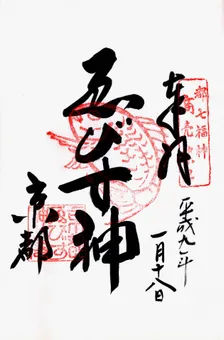 都七福神
商売
奉拝
ゑびす神
京都
平成九年
一月十八日